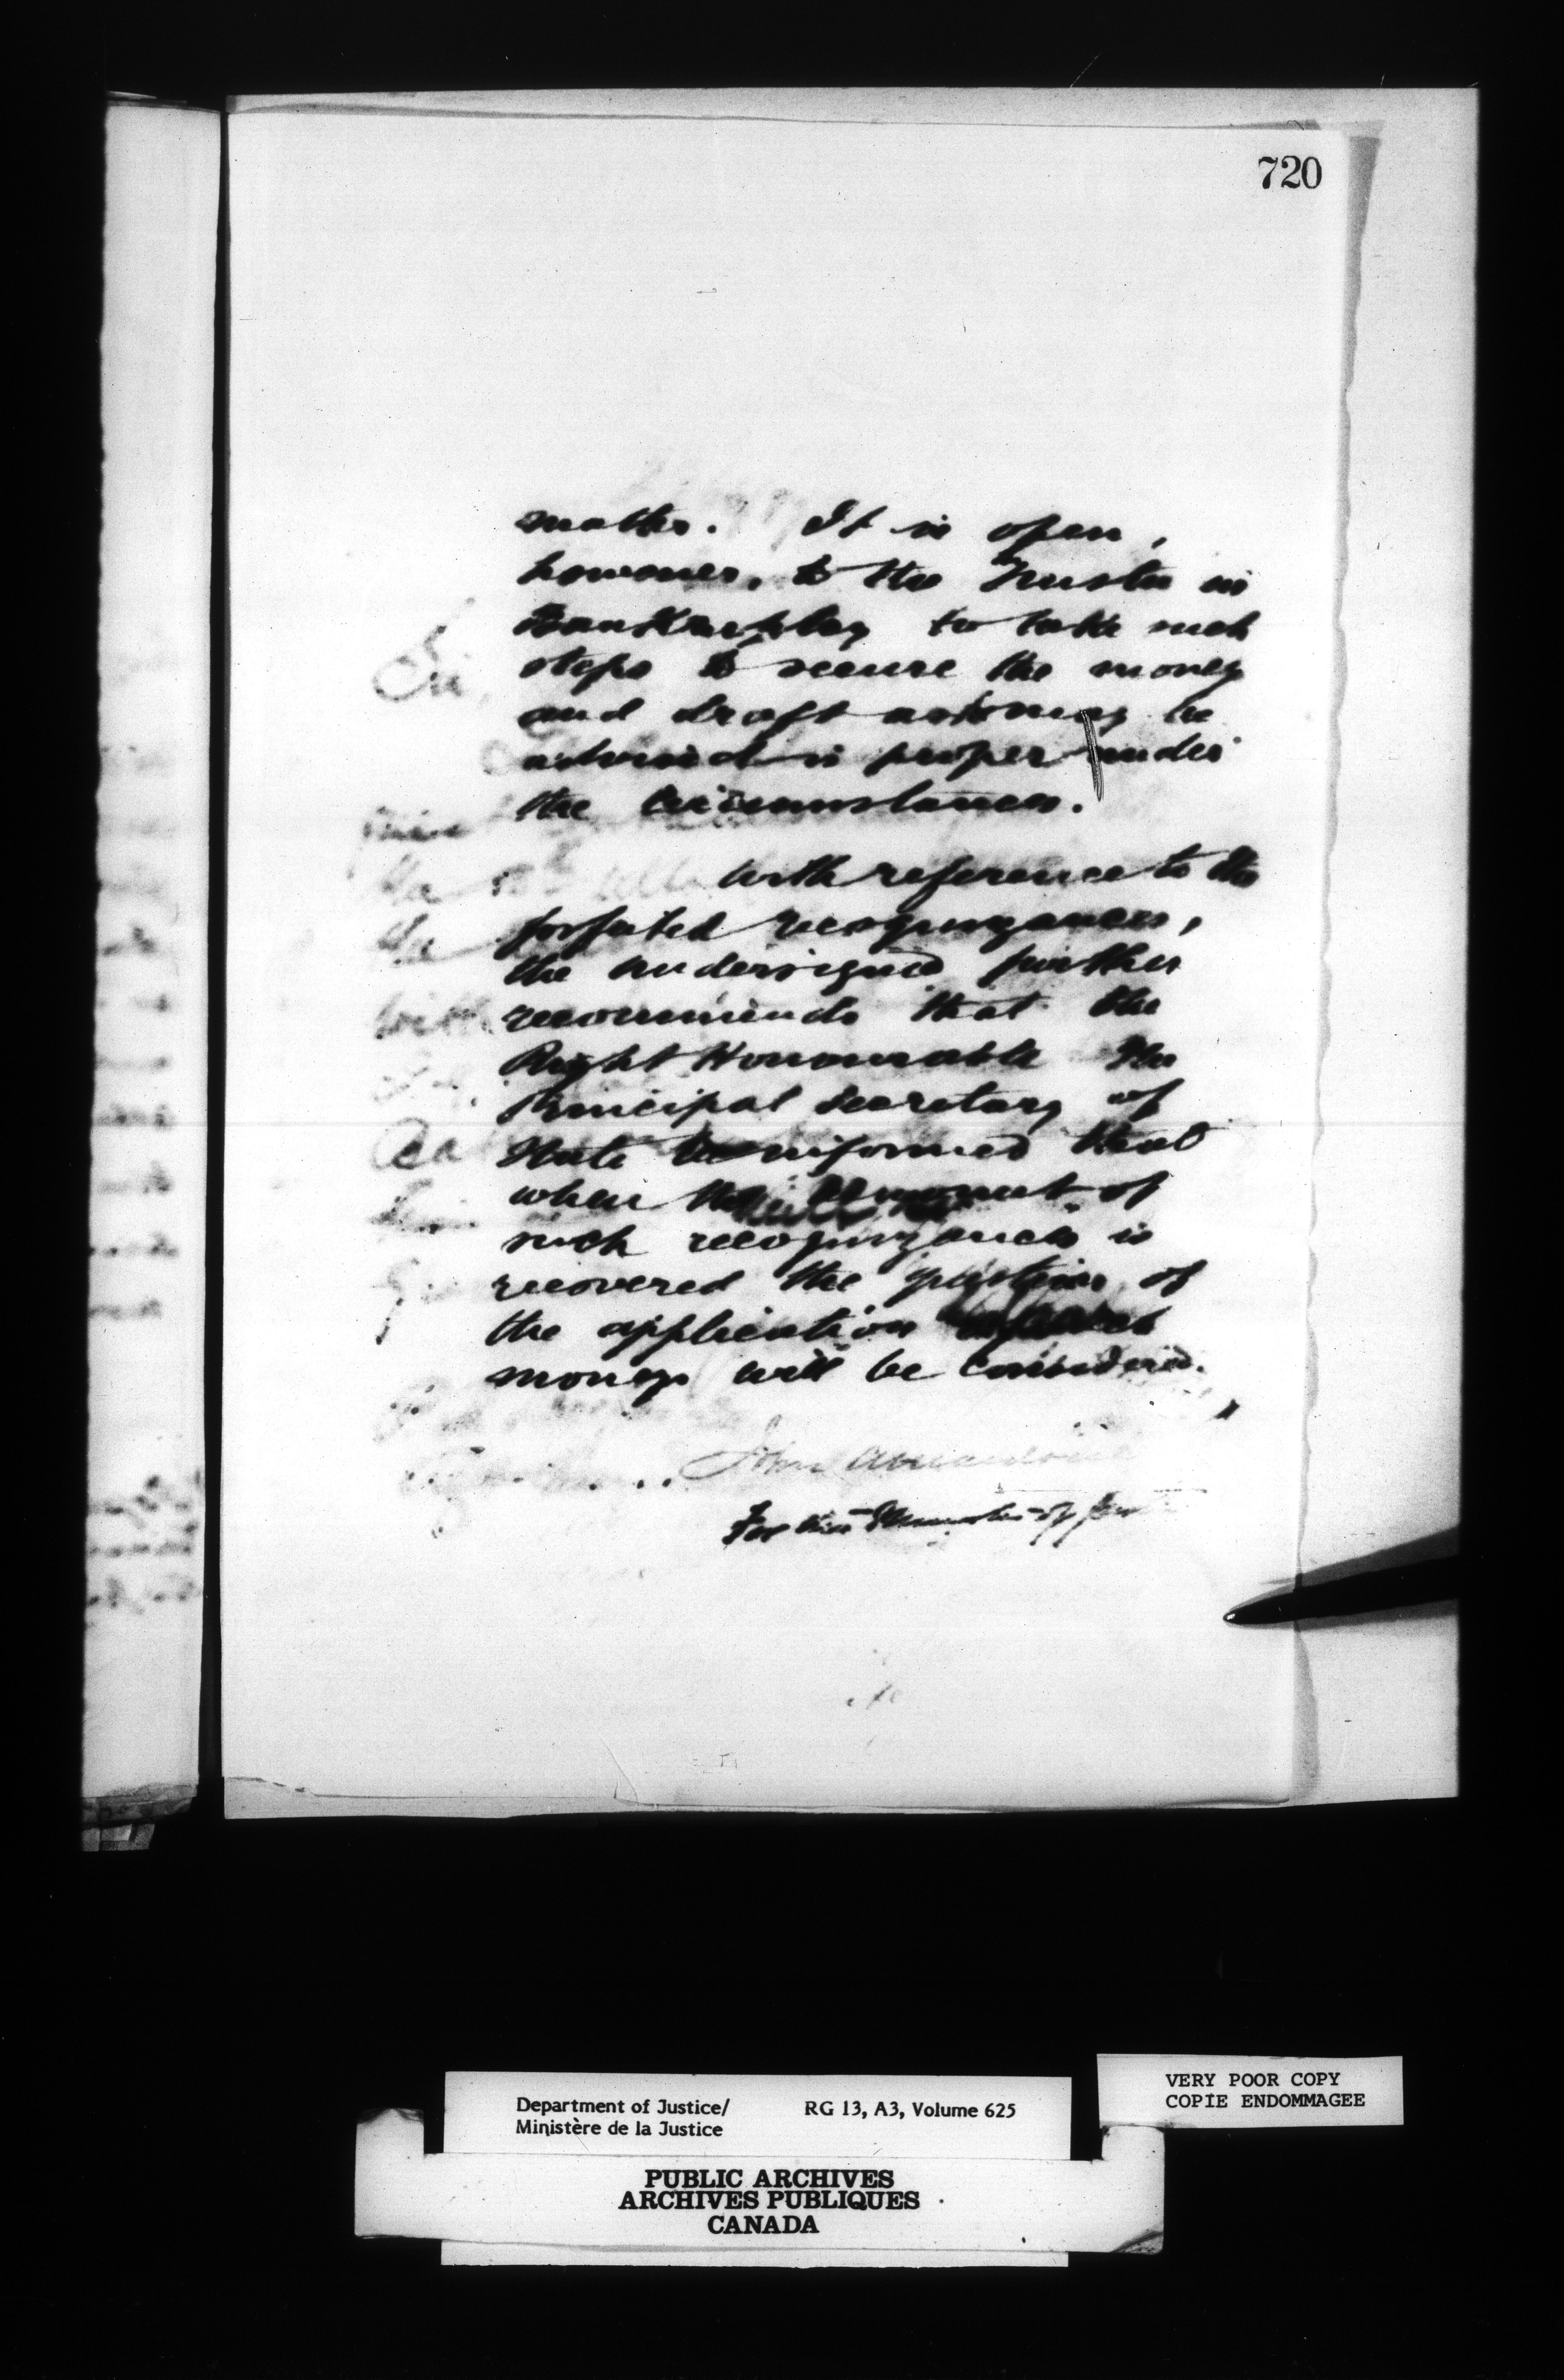 720
matter. It is open,
however, to the Trustee in
Bankruptcy to take such
steps to secure the money
and draft as he may be
advised is proper under
the circumstances.
With reference to the
forfeited recognizances,
the undersigned further
recommends that the
Right Honourable the
Principal Secretary of
State be informed that
when the amount of
such recognizances is
recovered the question of
the application
money will be considered.
John
For the Minister of Justice
Department of Justice/
Ministère de la Justice
RG 13, A3, Volume 625
VERY POOR COPY
COPIE ENDOMMAGEE
PUBLIC ARCHIVES
ARCHIVES PUBLIQUES
CANADA